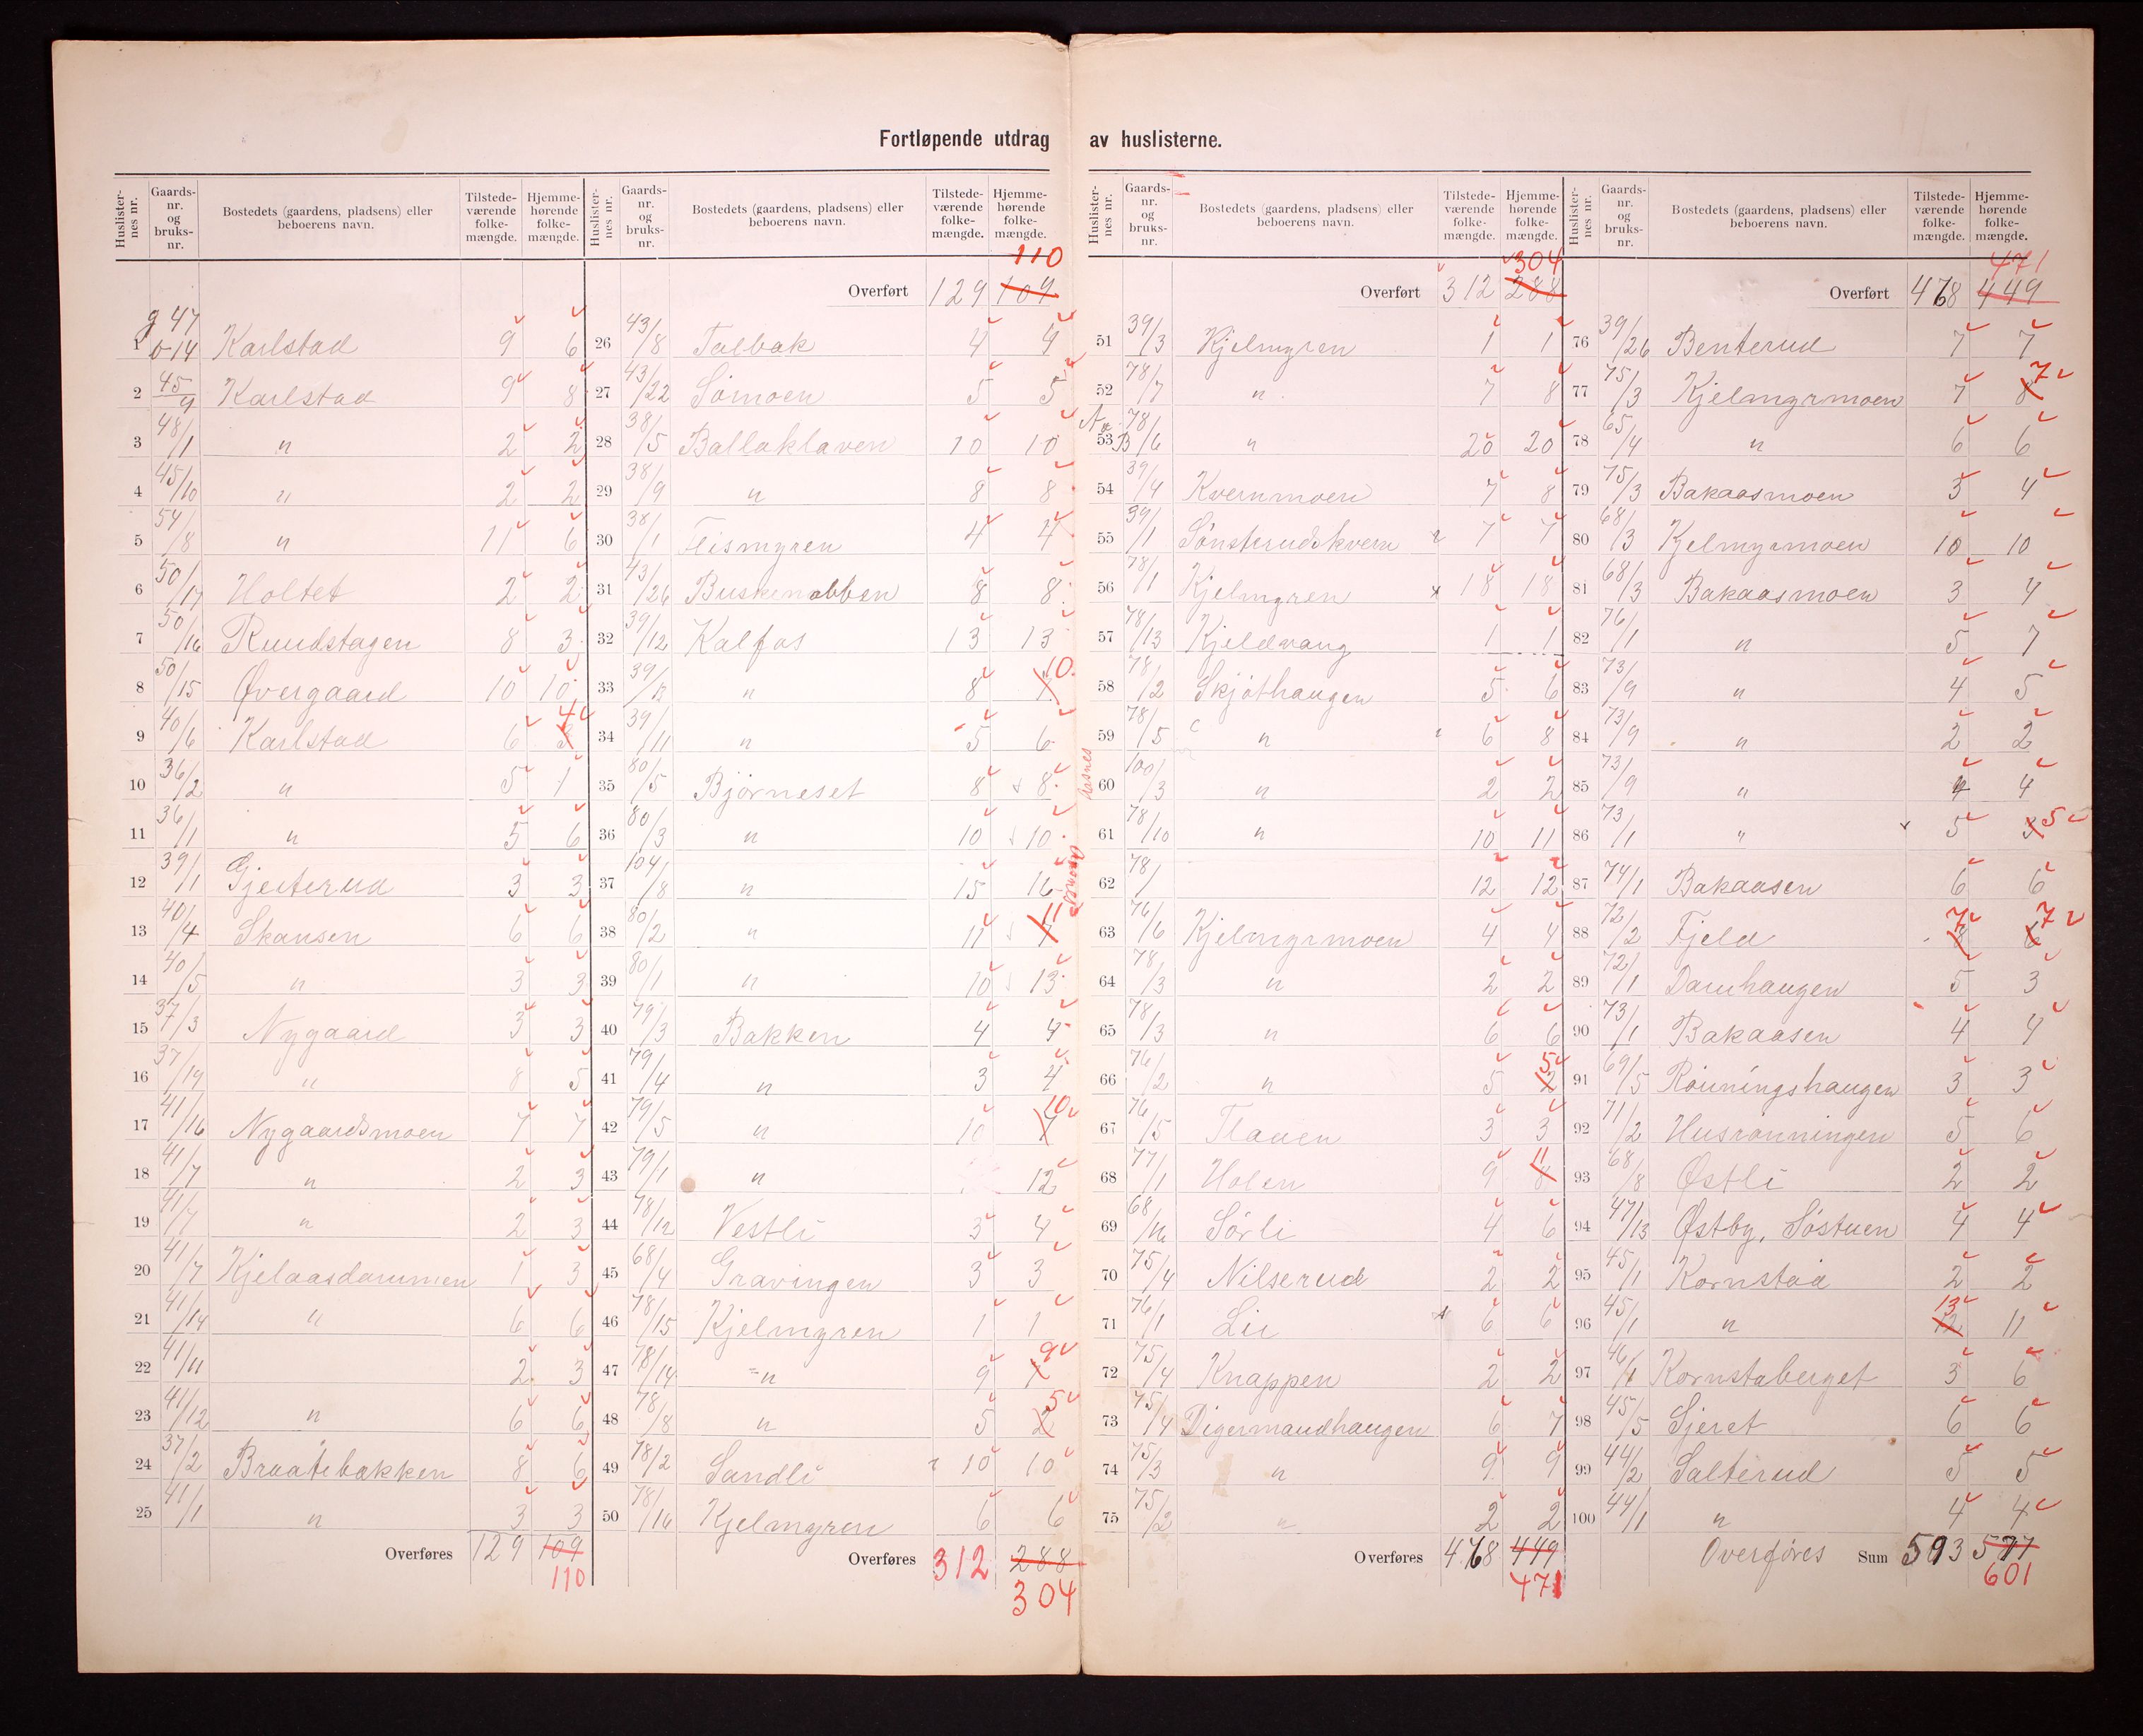 Fortløpende utdrag av huslisterne.
Huslisternes nr. Gaardsnr. og bruksnr. Bostedets (gaardens, pladsens) eller beboerens navn. Tilstedeværende folkemængde. Hjemmehørende folkemængde.
g 47
1 b 14 Karlstad 9 6
2 45/9 Karlstad 9 8
3 48/1 " 2 2
4 45/10 " 2 2
5 54/8 " 11 6
6 50/17 Holtet 2 2
7 50/16 Rundstagen 8 3
8 50/15 Øvergaard 10 10
9 40/6 Karlstad 6 3 4
10 36/2 " 5 1
11 36/1 " 5 6
12 39/1 Gjeiterud 3 3
13 40/4 Skansen 6 6
14 40/5 " 3 3
15 37/3 Nygaard 3 3
16 37/19 " 8 5
17 41/16 Nygaardsmoen 7 7
18 41/7 " 2 3
19 41/7 " 2 3
20 41/7 Kjelaasdammen 1 3
21 41/14 " 6 6
22 41/11 2 3
23 41/12 " 6 6
24 37/2 Braatebakken 8 6
25 41/1 " 3 3
Overføres 129 109
110
Huslisternes nr. Gaardsnr. og bruksnr. Bostedets (gaardens, pladsens) eller beboerens navn. Tilstedeværende folkemængde. Hjemmehørende folkemængde.
110
Overført 129 109
26 43/8 Talbak 4 4
27 43/22 Sømoen 5 5
28 38/5 Ballaklaven 10 10
29 38/9 " 8 8
30 38/1 Flismyren 4 4
31 43/26 Buskenabben 8 8
32 39/12 Kalfos 13 13
33 39/ " 8 10
34 39/11 " 5 6
35 80/5 Bjørneset 8 8
36 80/3 " 10 10
37 104/8 " 15 16
38 80/2 " 11 7 11
39 80/1 " 10 13
40 79/3 Bakken 4 4
41 79/4 " 3 4
42 79/5 " 10 7 10
43 79/1 " 12
44 78/12 Vestli 3 4
45 68/4 Gravingen 3 3
46 78/15 Kjelmyren 1 1
47 78/14 " 9 9
48 78/8 " 5 2 5
49 78/2 Sandli 10 10
50 78/16 Kjelmyren 6 6
Overføres 312 288
304
Huslisternes nr. Gaardsnr. og bruksnr. Bostedets (gaardens, pladsens) eller beboerens navn. Tilstedeværende folkemængde. Hjemmehørende folkemængde.
304
Overført 312 288
51 39/3 Kjelmyren 1 1
52 78/7 " 7 8
53 78/6 " 20 20
54 39/4 Kvernmoen 7 8
55 39/1 Sønsterudskvern 7 7
56 78/1 Kjelmyren 18 18
57 78/13 Kjeldvang 1 1
58 78/2 Skjøthaugen 5 6
59 78/5 " 6 8
60 100/3 " 2 2
61 78/10 " 10 11
62 78/ 12 12
63 76/6 Kjelmyrmoen 4 4
64 78/3 " 2 2
65 78/3 " 6 6
66 76/2 " 5 2 5
67 76/5 Flauen 3 3
68 77/1 Holen 9 8 11
69 68/ Sørli 4 6
70 75/4 Nilserud 2 2
71 76/1 Lii 6 6
72 75/4 Knappen 2 2
73 75/4 Digermandhaugen 6 7
74 75/3 " 9 9
75 75/2 " 2 2
Overføres 468 449
471
Huslisternes nr. Gaardsnr. og bruksnr. Bostedets (gaardens, pladsens) eller beboerens navn. Tilstedeværende folkemængde. Hjemmehørende folkemængde.
471
Overført 468 449
76 39/26 Benterud 7 7
77 75/3 Kjelmyrmoen 7 8 7
78 65/4 " 6 6
79 75/3 Bakaasmoen 3 4
80 68/3 Kjelmyrmoen 10 10
81 68/3 Bakaasmoen 3 4
82 76/1 " 5 7
83 73/9 " 4 5
84 73/9 " 2 2
85 73/9 " 4 4
86 73/1 " 5 3 5
87 74/1 Bakaasen 6 6
88 72/2 Fjeld 8 7 6 7
89 72/1 Damhaugen 5 3
90 73/1 Bakaasen 4 4
91 69/5 Rønningshaugen 3 3
92 71/2 Husrønningen 5 6
93 68/8 Østli 2 2
94 47/13 Østby, Søstuen 4 4
95 45/1 Kornstad 2 2
96 45/1 " 12 13 11
97 46/1 Kornstaberget 3 6
98 45/5 Sjeret 6 6
99 44/2 Salterud 5 5
100 44/1 " 4 4
Overføres Sum 593 577
601